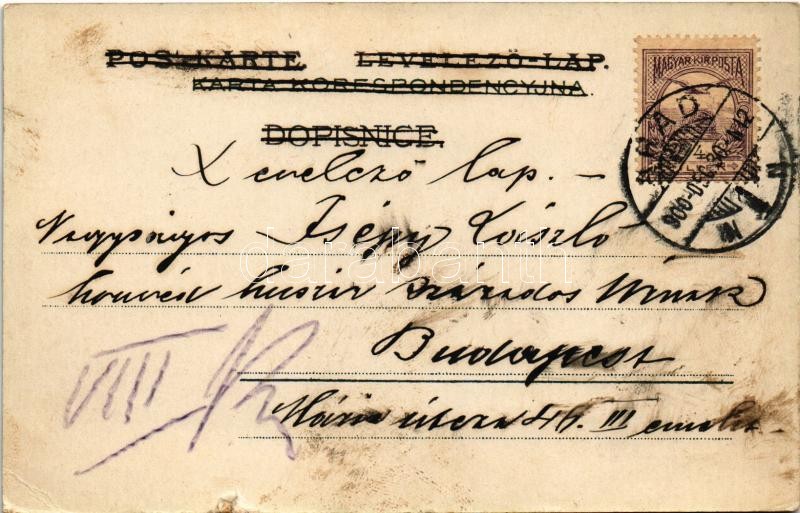 POST-KARTE. LEVELEZŐ-LAP.
KARTA KORESPONDENCYJNA.
DOPISNICE.
MAGYAR KIR. POSTA
ARAD
Levelező lap. –
Nagyságos Isépy László
honvéd huszár százados Úrnak
Budapest
Mária utcza 46. III emelet.
VIII
darabanth